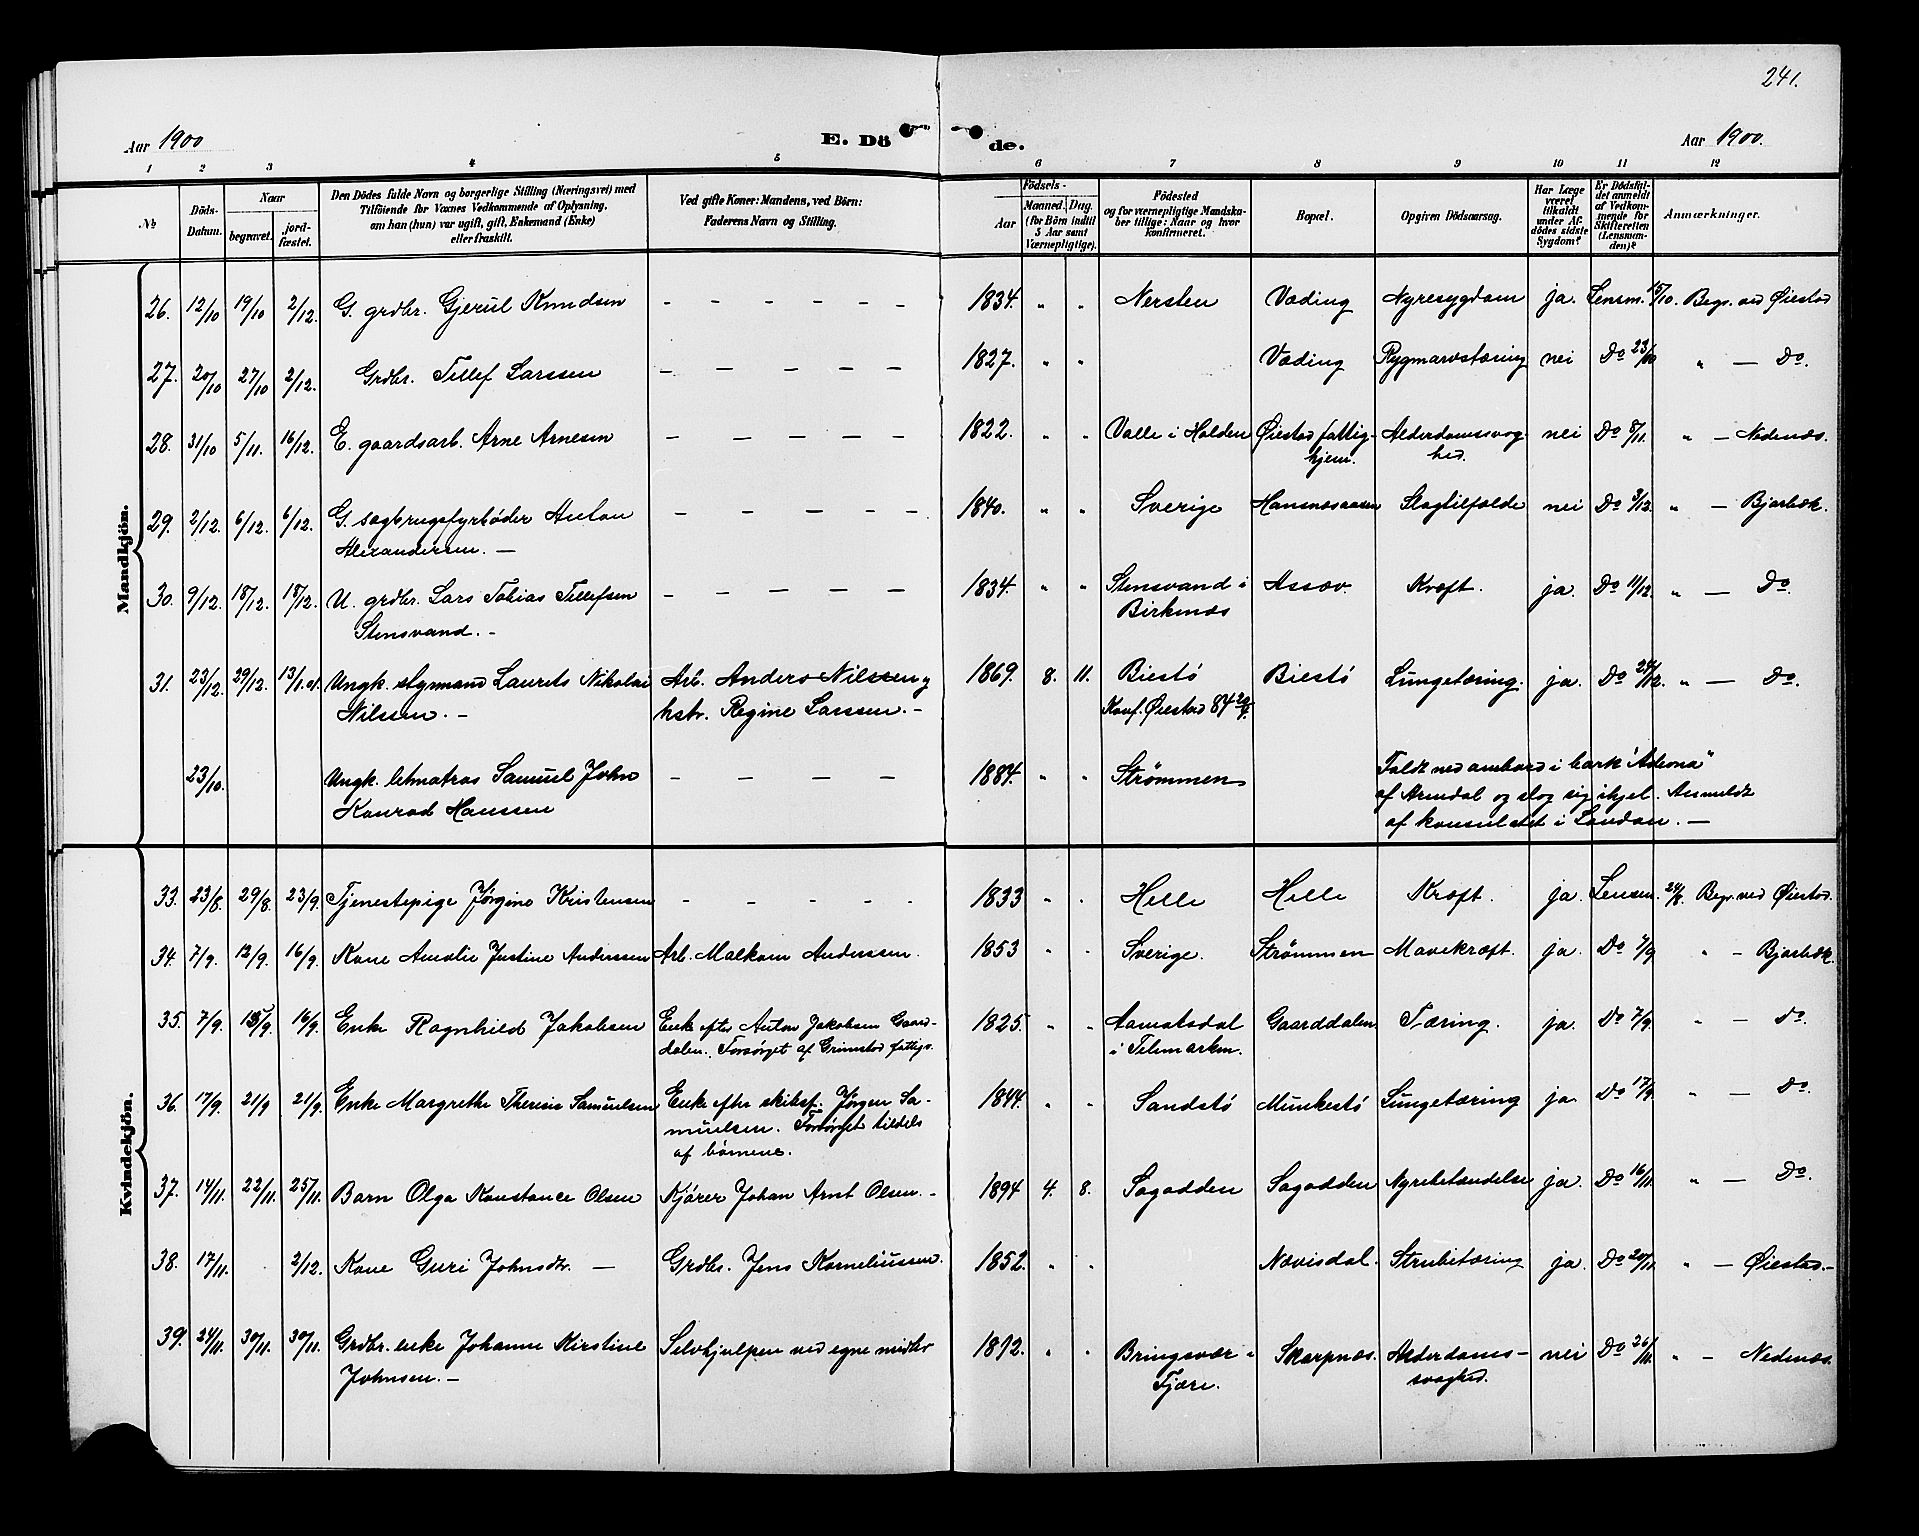 241.
Aar 1900
E. Dö
de.
Aar 1900.
1 2 3 4 5 6 7 8 9 10 11 12
№
Döds-Datum.
Naar
begravet.
jord-fæstet.
Den Dödes fulde Navn og borgerlige Stilling (Næringsvei) med
Tilföiende for Voxnes Vedkommende af Oplysning,
om han (hun) var ugift, gift, Enkemand (Enke)
eller fraskilt.
Ved gifte Koner: Mandens, ved Börn:
Faderens Navn og Stilling.
Födsels-
Aar
Maaned. Dag.
(for Börn indtil
5 Aar samt
Værnepligtige).
Födested
og for værnepligtige Mandska-
ber tillige: Naar og hvor
konfirmeret.
Bopæl.
Opgiven Dödsaarsag.
Har Læge
været
tilkaldt
under Af-
dödes sidste
Sygdom?
Er Dödsfal-
det anmeldt
af Vedkom-
mende for
Skifteretten
(Lensman-
den)?
Anmærkninger.
Mandkjön.
26. 12/10 19/10 2/12. G. grdbr. Gjerul Knudsen – – – – – 1834. „ „ Nersten Væding Nyresygdom ja. Lensm. 15/10. Begr. ved Øiestad
27. 20/10 27/10 2/12. Grdbr. Tellef Larssen – – – – – 1827. „ „ Væding Rygmarvstæring nei Do 23/10 „ — Do.
28. 31/10 5/11. 16/12. E. gaardsarb. Arne Arnesen – – – – 1822. „ „ Valle i Holden Øiestad fattig- Alderdomssvag- nei Do 8/11. „ — Nedenæs.
hjem. hed.
29. 2/12. 6/12. 6/12. G. sagbrugsfyrbøder Anton – – – – 1840. „ „ Sverige Hansnesaasen Slagtilfælde nei Do 3/12. „ — Bjorbæk.
Alexandersen. —
30. 9/12. 18/12. 18/12. U. grdbr. Lars Tobias Tellefsen – – – – – 1834. „ „ Stensvand i Assæv. Kræft. ja Do 11/12. „ — Do
Stensvand. – Birkenæs
31. 23/12. 29/12. 13/1.01. Ungk. styrmand Laurits Nikolai Arb. Anders Nilssen og 1869. 8. 11. Biestø Biestø Lungetæring. ja. Do 24/12. „ — Do.
Nilssen. – hstr. Regine Larssen. – Konf. Øiestad 84
23/10. Ungk. letmatros Samuel John – – – – 1884. „ „ Strømmen Faldt ned ombord i bark "Adeona"
Konrad Hanssen af Arendal og slog sig ihjel. Anmeldt
af konsulatet i London. —
Kvindekjön.
33. 23/8. 29/8. 23/9. Tjenestepige Jørgine Kristensen – – – – – 1833 „ „ Helle Helle Kræft. ja. Lensm. 24/8. Begr. ved Øiestad.
34. 7/9. 12/9. 16/9. Kone Amalie Justine Anderssen Arb. Malkom Anderssen. 1853 „ „ Sverige. Strømmen Mavekræft. ja. Do 7/9 „ – Bjorbæk.
35. 7/9. 15/9. 16/9. Enke Ragnhild Jakobsen Enke efter Anton Jakobsen Gaard- 1825. „ „ Aamotsdal Gaarddalen Tæring. ja. Do 7/9. „ — Do.
dalen. Forsørget af Grimstad fattigv. i Telemarken.
36. 17/9. 21/9 21/9. Enke Margrethe Theresie Samuelsen Enke efter skibsf. Jørgen Sa- 1844. „ „ Sandstø Munkestø Lungetæring ja Do 17/9 „ — Do
muelsen. Forsørget tildels
af børnene.
37. 14/11. 22/11. 25/11. Barn Olga Konstance Olsen Kjører Johan Arnt Olsen. – 1894 4. 8. Sagodden Sagodden Nyrebetændelse ja. Do 16/11. „ — Do.
38. 17/11. 2/12. Kone Guri Johnsdtr. — Grdbr. Jens Korneliussen. 1852. „ „ Nævisdal. Strubetæring ja. Do 20/11. „ — Øiestad.–
39. 24/11. 30/11. 30/11. Grdbr. enke Johanne Kirstine Selvhjulpen ved egne midler 1812. „ „ Bringsvær i Skarpnæs. Alderdoms- nei Do 26/11. „ — Nedenæs.
Johnsen. – Fjære. svaghed.